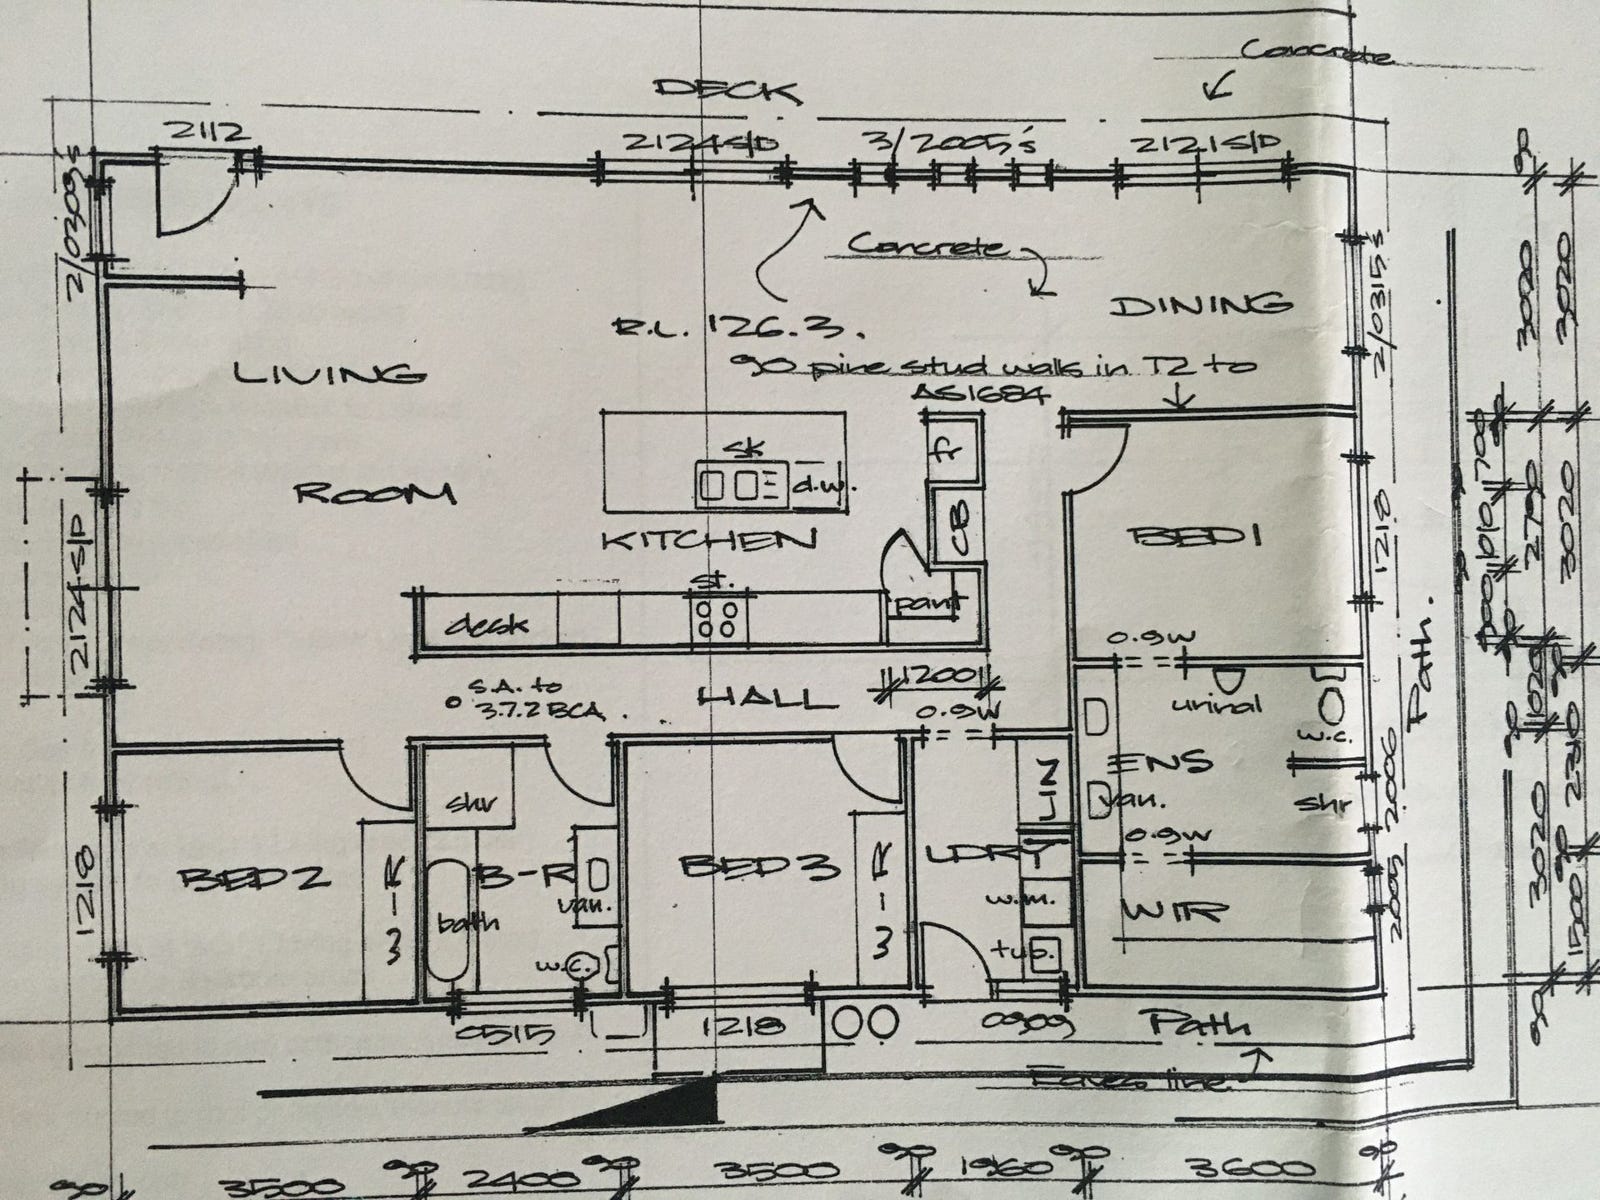 Concrete
DECK
2112
2124 S/D
3/2005's
2121 S/D
2/0309's
Concrete
DINING
2/0315's
R.L. 126.3.
90 pine stud walls in T2 to
AS1684
LIVING
ROOM
sk
d.w.
fr
CB
KITCHEN
BED 1
1218
2124 S/D
st.
desk
pant
0.9w
S.A. to
3.7.2 BCA.
HALL
1200
0.9w
urinal
w.c.
Path.
ENS
van.
shr
2006
0.9w
shr
LIN
LDRY
BED 2
R-I-3
B-R
van.
bath
w.c.
BED 3
R-I-3
w.m.
tub.
WIR
2005
1218
0515
1218
0909
Path
Eaves line.
90
3020
3020
700
1010
2790
3020
1020
2210
3020
1500
90
90
3500
90
2400
90
3500
90
1960
90
3600
90